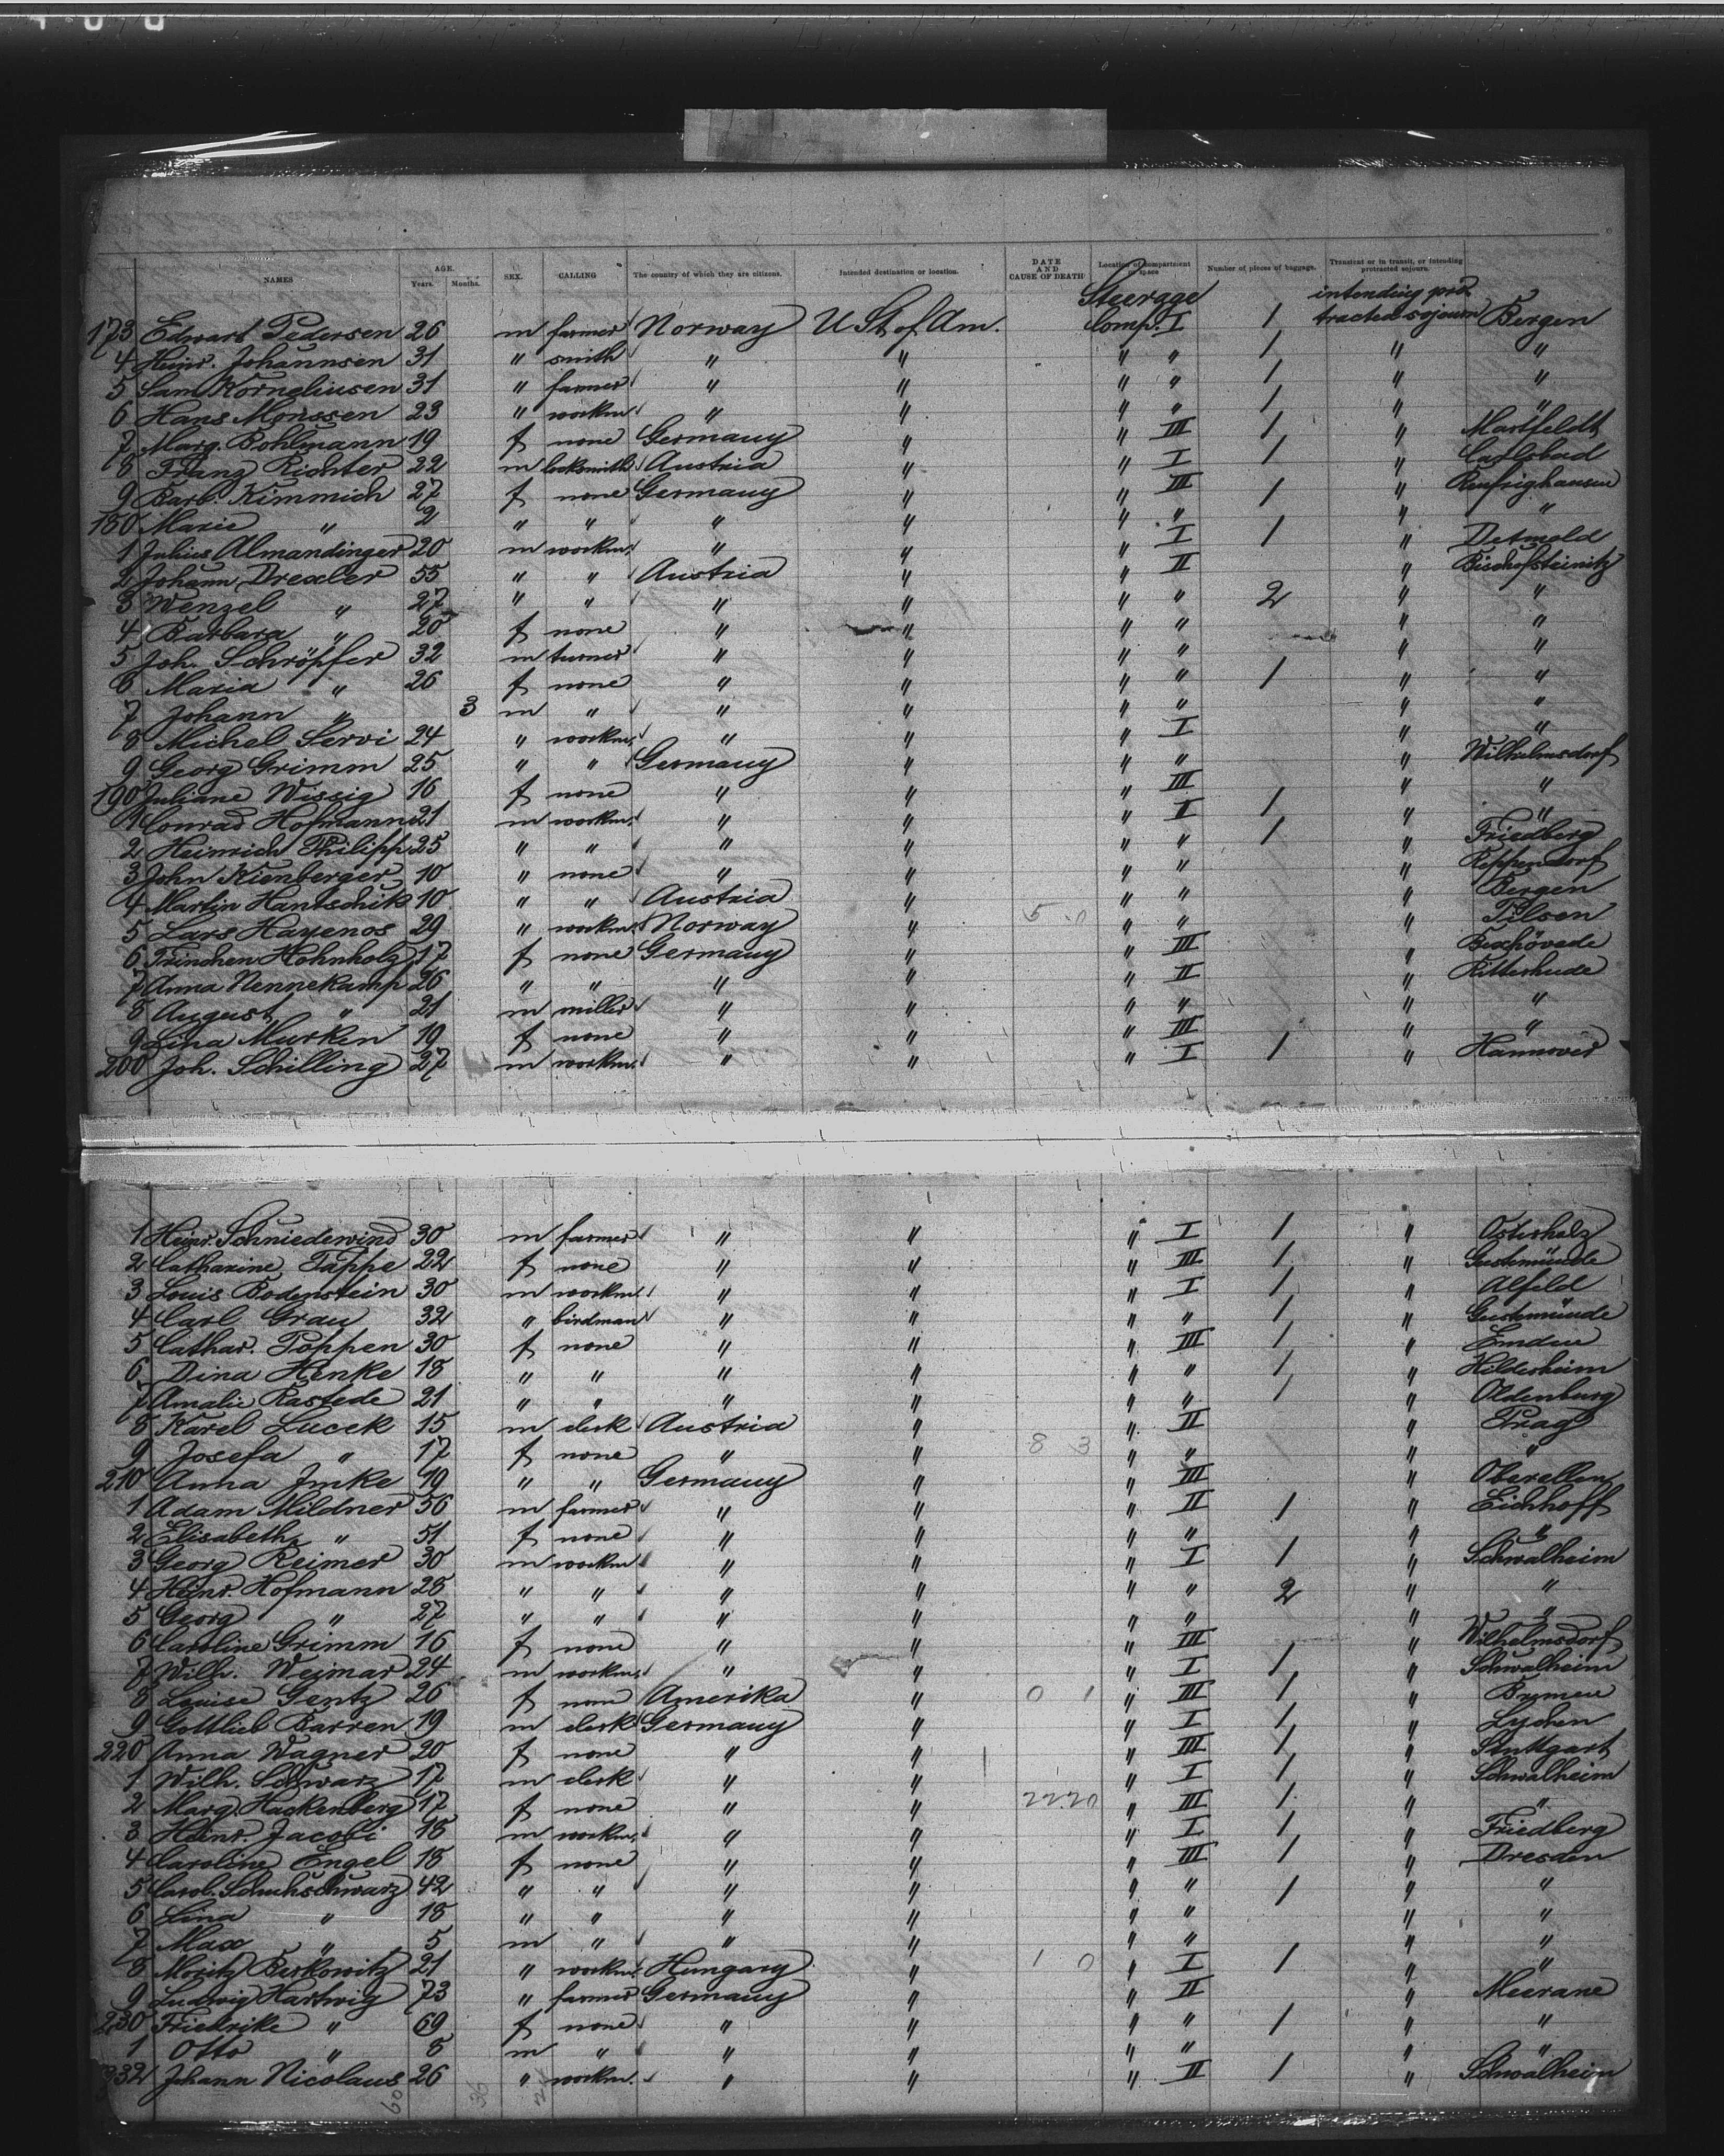 NAMES AGE. Years. Months. SEX. CALLING The country of which they are citizens. Intended destination or location. DATE AND CAUSE OF DEATH Location of compartment or space Number of pieces of baggage. Transient or in transit, or intending protracted sojourn.
Steerage intending pro-
173 Edwart Pedersen 26 m farmer Norway U St of Am. Comp. I 1 tracted sojourn Bergen
4 Heinr. Johannsen 31 " smith " " " " 1 " "
5 Sam Korneliusen 31 " farmer " " " " 1 " "
6 Hans Monssen 23 " workm. " " " " 1 " "
7 Marg. Bohlmann 19 f none Germany " " III 1 " Martfeldt
8 Franz Richter 22 m locksmith Austria " " I 1 " Carlsbad
9 Barb. Kimmich 27 f none Germany " " III 1 "
180 Marie " 2 " " " " " " "
1 Julius Almandinger 20 m workm. " " " I 1 " Detmold
2 Johann Drexler 55 " " Austria " " II " Bischofsteinitz
3 Wenzel " 27 " " " " " " 2 " "
4 Barbara " 20 f none " " " " " "
5 Joh. Schröpfer 32 m turner " " " " " "
6 Maria " 26 f none " " " " 1 " "
7 Johann " 3 m " " " " " " "
8 Michel Servi 24 " workm. " " " I " "
9 Georg Grimm 25 " " Germany " " " " Wilhelmsdorf
190 Juliane Wissig 16 f none " " " III " "
1 Conrad Hofmann 21 m workm. " " " II 1 " "
2 Heinrich Philipp 25 " " " " " " 1 " Friedberg
3 John Kienberger 10 " none " " " " " Reppendorf
4 Martin Hantschik 10 " " Austria " " " " Bergen
5 Lars Hayenos 29 " workm. Norway " 5 0 " " " Pilsen
6 Trinchen Hohnholz 17 f none Germany " " III " Bexhövede
7 Anna Nennekamp 26 " " " " " II " Ritterhude
8 August " 21 m miller " " " " " "
9 Lina Murken 19 f none " " " III " "
200 Joh. Schilling 27 m workm. " " " I 1 " Hannover
1 Heinr. Schniedewind 30 m farmer " " " I 1 " Osterholz
2 Catharine Tappe 22 f none " " " III 1 " Geestemünde
3 Louis Bodenstein 30 m workm. " " " I 1 " Alfeld
4 Carl Grau 32 " birdman " " " " 1 " Geestemünde
5 Cathar. Poppen 30 f none " " " III 1 " Emden
6 Dina Henke 18 " " " " " " 1 " Hildesheim
7 Amalie Rastede 21 " " " " " " 1 " Oldenburg
8 Karel Lucek 15 m clerk Austria " " II " Prag
9 Josefa " 17 f none " " 8 3 " " " "
210 Anna Imke 19 " " Germany " " III " Oberellen
1 Adam Mildner 56 m farmer " " " II 1 " Eichhoff
2 Elisabeth " 51 f none " " " " " "
3 Georg Reimer 30 m workm " " " I 1 " Schwalheim
4 Heinr. Hofmann 28 " " " " " " 2 " "
5 Georg " 27 " " " " " " " "
6 Caroline Grimm 16 f none " " " III " Wilhelmsdorf
7 Wilh. Weimar 24 m workm. " " " I 1 " Schwalheim
8 Louise Gentz 26 f none Amerika " 0 1 " III 1 " Bremen
9 Gottlieb Barren 19 m clerk Germany " " I 1 " Lychen
220 Anna Wagner 20 f none " " " III 1 " Stuttgart
1 Wilh. Schwarz 17 m clerk " " " I 1 " Schwalheim
2 Marg. Hackenberg 17 f none " " 22 20 " III 1 " "
3 Heinr. Jacobi 18 m workm. " " " I 1 " Friedberg
4 Caroline Engel 18 f none " " " III 1 " Dresden
5 Carol. Schuhschwarz 42 " " " " " " 1 " "
6 Lina " 18 " " " " " " " "
7 Max " 5 m " " " " " " "
8 Moritz Berkowitz 21 " workm. Hungary " 1 0 " I 1 " "
9 Ludwig Hartwig 73 " farmer Germany " " II " Meerane
230 Friedrike " 69 f none " " " " 1 " "
1 Otto " 8 m " " " " " " "
232 Johann Nicolaus 26 " workm. " " " II 1 " Schwalheim
60 36 24